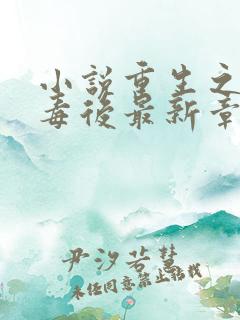 小说重生之
毒后最新章
尹汐若慧
未经同意禁止转载